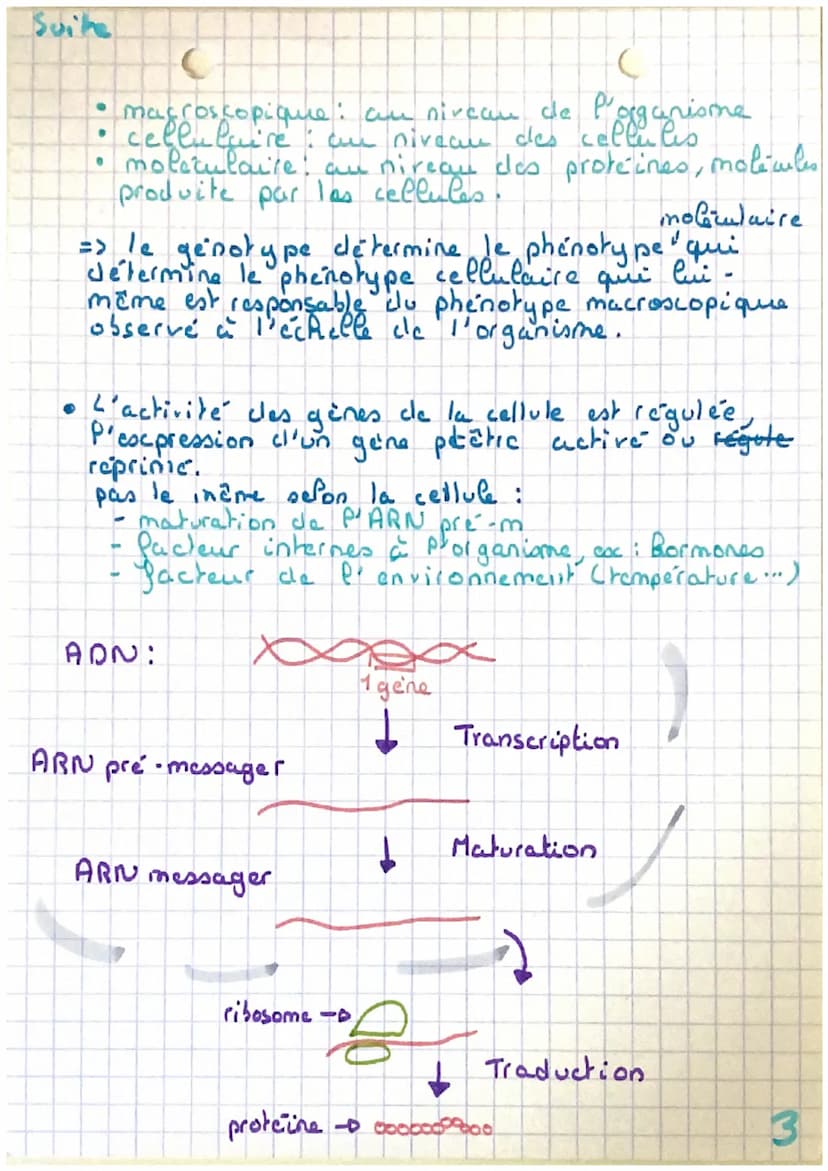 Suite
• macroscopique : au niveau de l'organisme
• cellulaire : au niveau des cellules
• moléculaire : au niveau des protéines, molécules
produite par les cellules.
moléculaire
=> le génotype détermine le phénotype " qui
détermine le phénotype cellulaire qui lui-
même est responsable du phénotype macroscopique
observé à l'échelle de l'organisme.
• L'activité des gènes de la cellule est régulée,
l'expression d'un gène ptêtre activé ou régule
réprimé.
pas le même selon la cellule :
- maturation de l'ARN pré-m
- facteur internes à l'organisme, ex : hormones
- facteur de l'environnement (température...)
ADN :
1 gène
Transcription
ARN pré-messager
Maturation
ARN messager
ribosome
Traduction
protéine
3